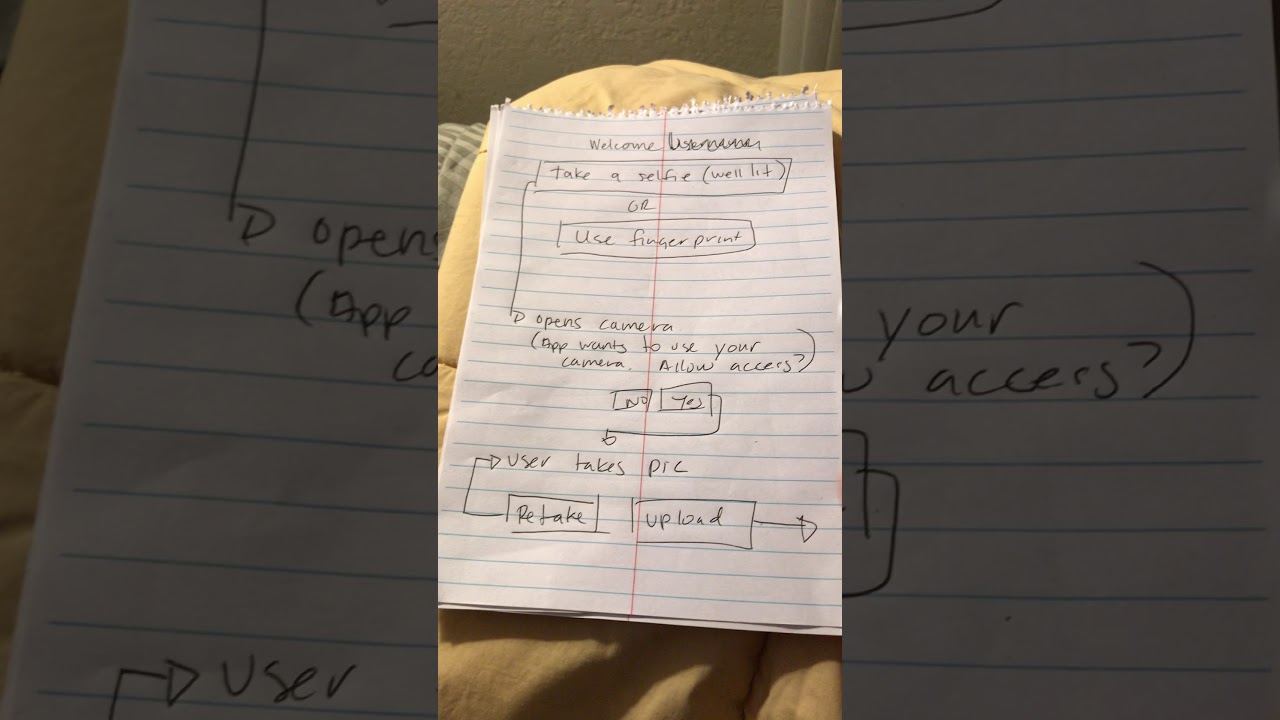 Welcome Username
take a selfie (well lit)
OR
Use fingerprint
opens camera
(App wants to use your
camera. Allow access?)
No Yes
User takes pic
Retake upload